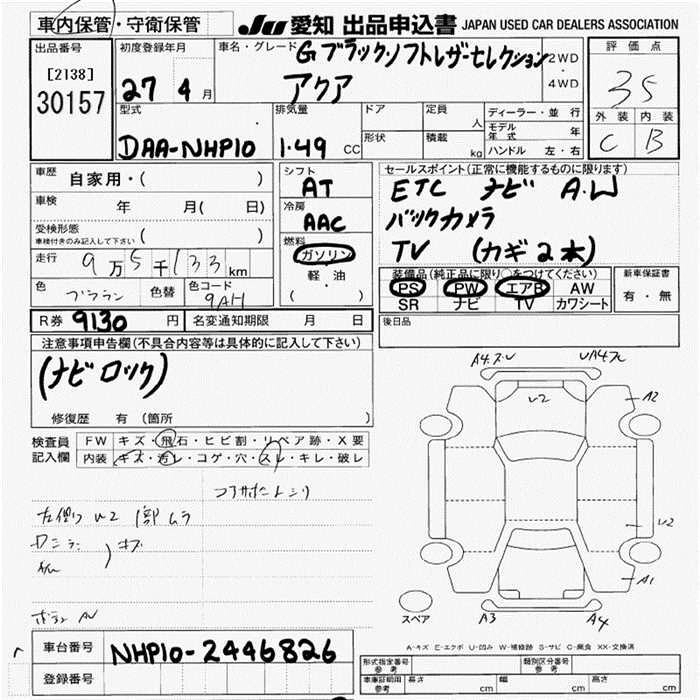 車内保管・守衛保管
JU 愛知 出品申込書 JAPAN USED CAR DEALERS ASSOCIATION
出品番号
[2138]
30157
初度登録年月
27 4 月
車名・グレード
Gブラックソフトレザーセレクション
アクア
2WD
・
4WD
評価点
35
外装 内装
C B
型式
DAA-NHP10
排気量
1.49 CC
ドア
定員 人
形状
積載 kg
ディーラー・並行
モデル年式 年
ハンドル 左・右
車歴 自家用・( )
車検 年 月( 日)
受検形態
車検付きのみ記入して下さい ( )
走行 9万5千133km
色
色替
色コード
9AH
シフト
AT
冷房
AAC
燃料
ガソリン
軽・油
( )
セールスポイント(正常に機能するものに限ります)
ETC ナビ A.W
バックカメラ
TV (カギ2本)
装備品(純正品に限り○をつけてください)
PS PW エアB AW
SR ナビ TV カワシート
新車保証書
有・無
R券 9130 円
名変通知期限 月 日
後日品
注意事項申告欄(不具合内容等は具体的に記入して下さい)
(ナビロック)
修復歴 有(箇所 )
検査員記入欄
FW キズ・飛石・ヒビ割・リペア跡・X要
内装 キズ・汚レ・コゲ・穴・スレ・キレ・破レ
A2
U2
U2
A1
A3
A4
スペア
A-キズ E-エクボ U-凹み W-補修跡 S-サビ C-腐食 XX-交換済
車台番号 NHP10-2446826
登録番号
形式指定番号 参考
類別区分番号 参考
車庫証明用 参考
長さ cm
幅 cm
高さ cm